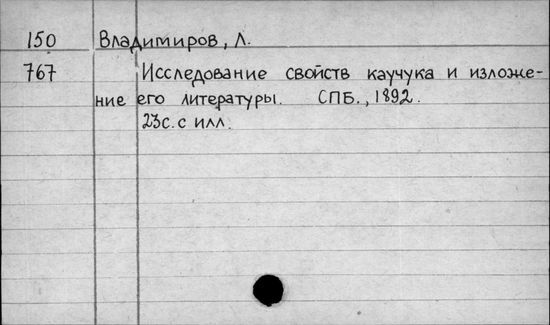 150 Владимиров, Л.
767 Исследование свойств каучука и изложе-
ние его литературы. СПБ., 1892.
23с. с илл.